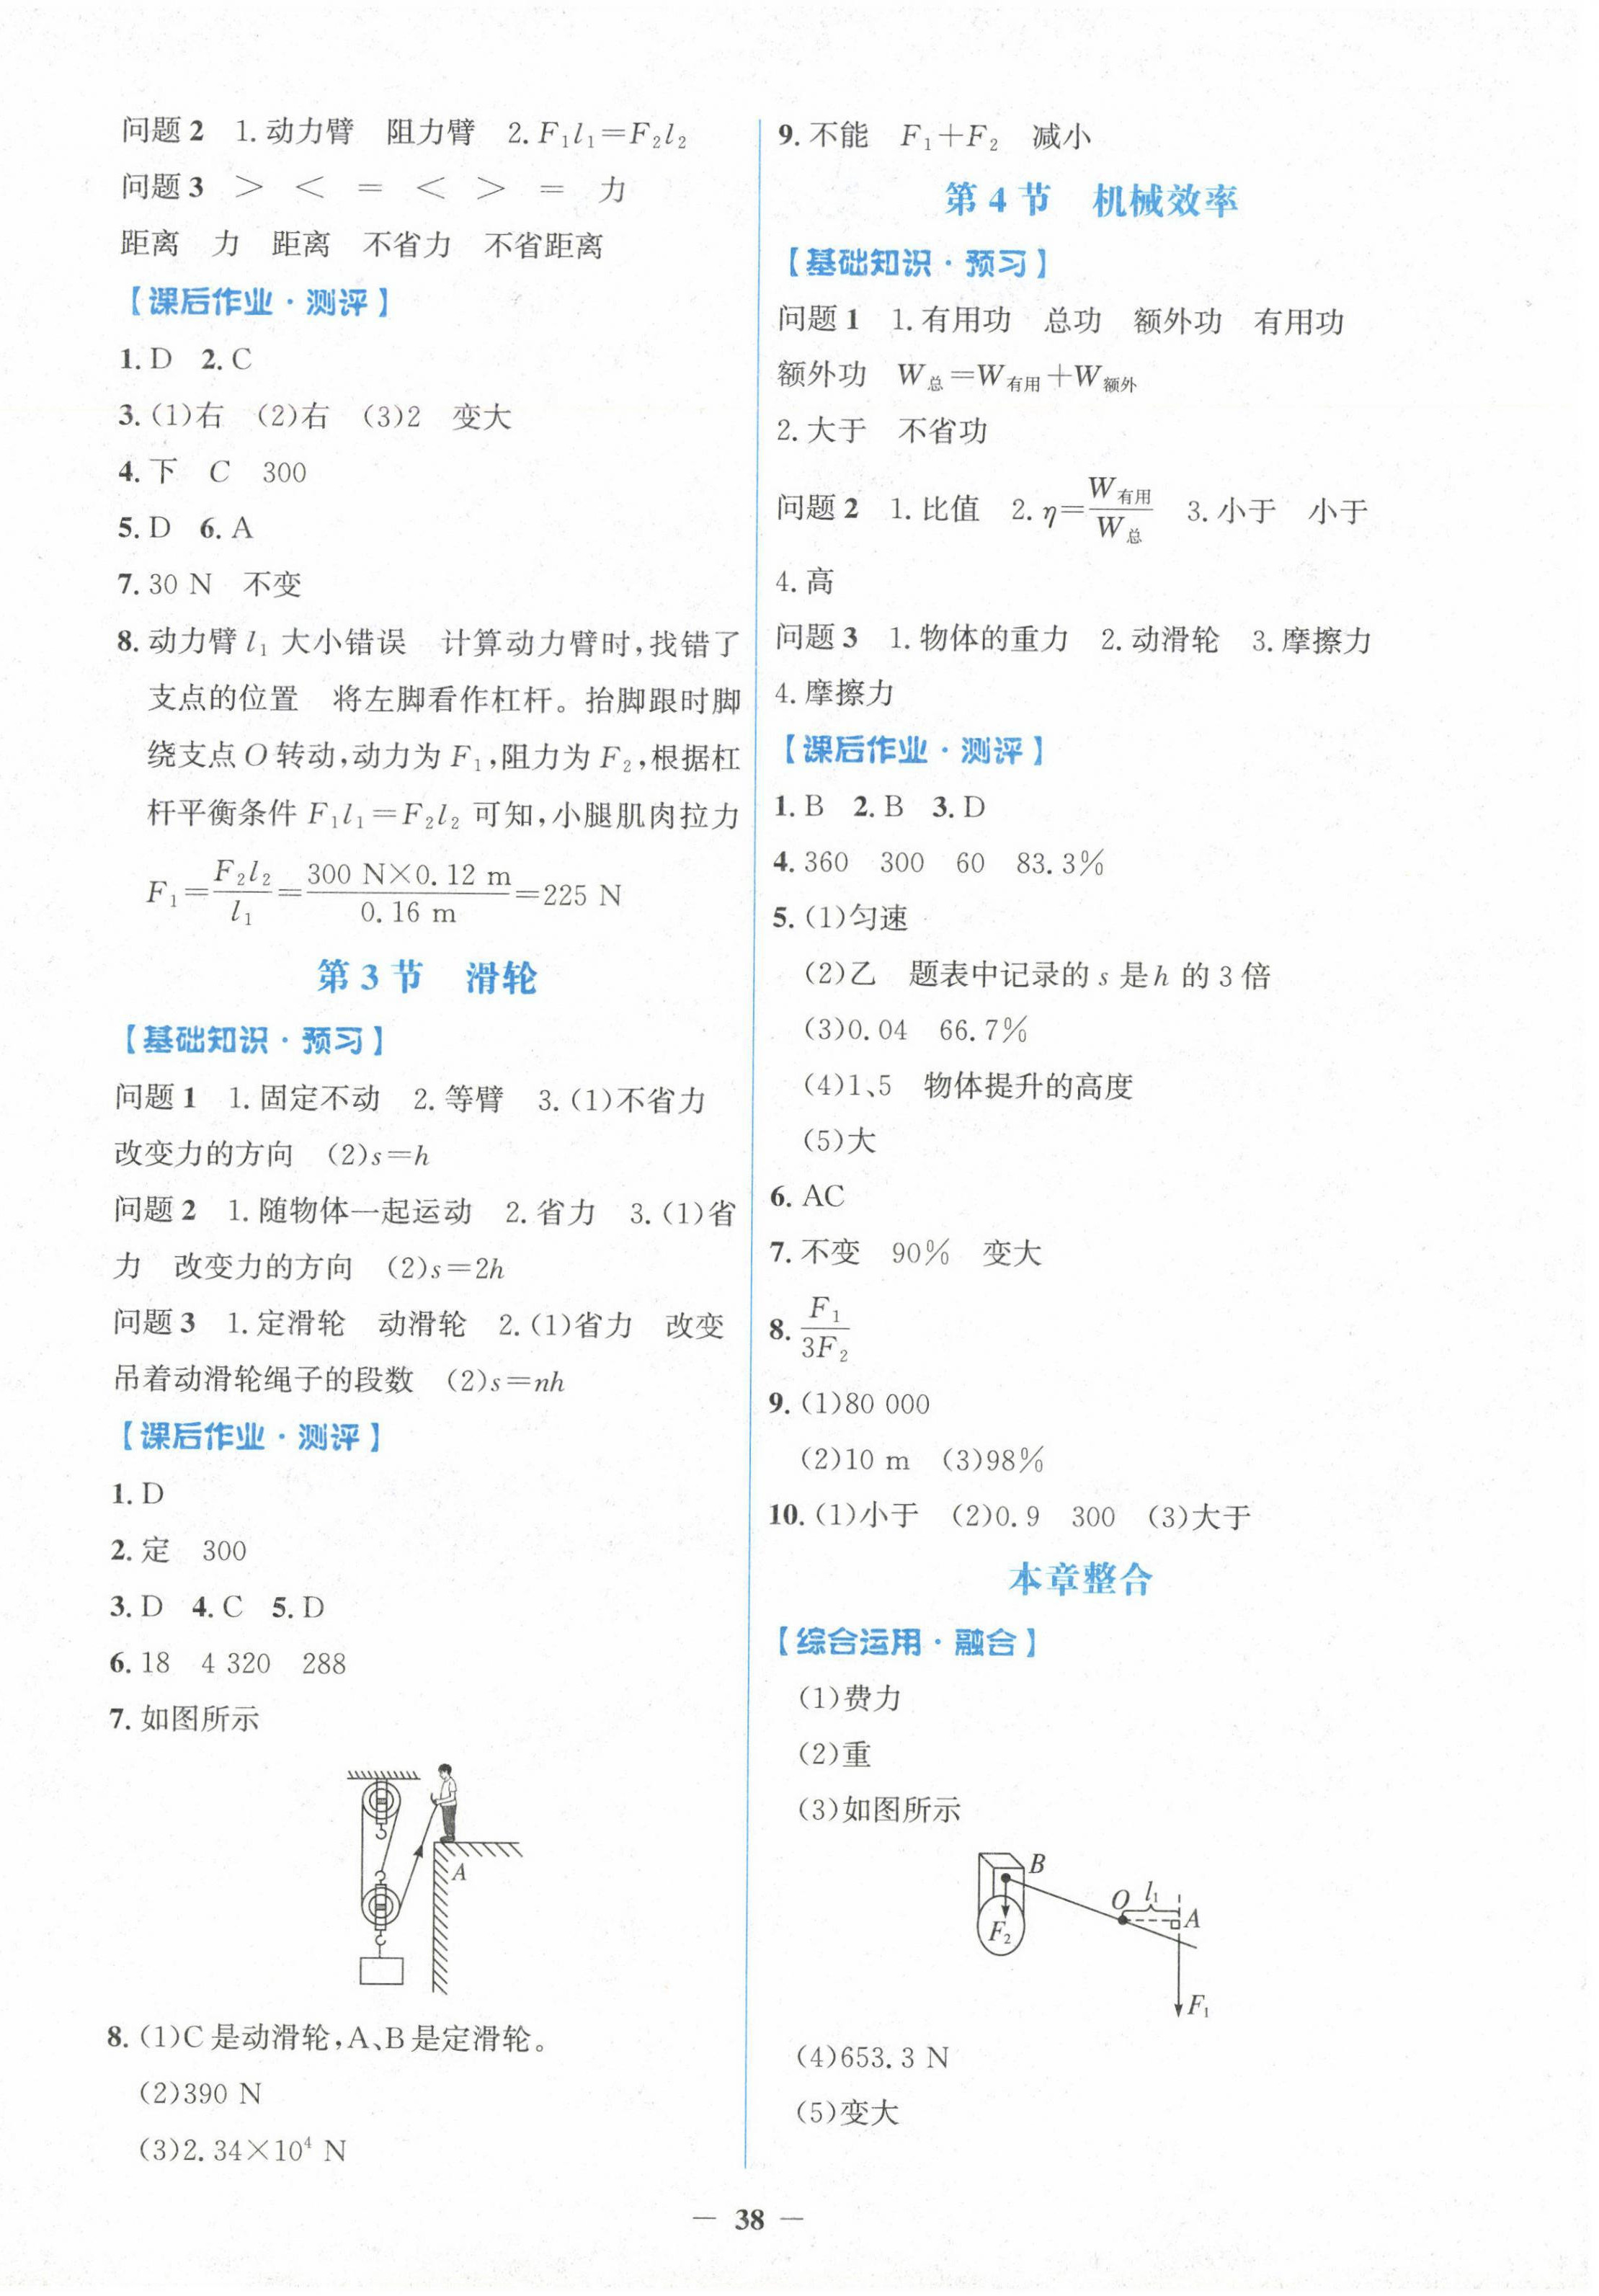 问题2 1.动力臂 阻力臂 2.F₁l₁=F₂l₂
问题3 > < = < > = 力
距离 力 距离 不省力 不省距离
【课后作业·测评】
1.D 2.C
3.(1)右 (2)右 (3)2 变大
4.下 C 300
5.D 6.A
7.30 N 不变
8.动力臂 l₁ 大小错误 计算动力臂时,找错了
支点的位置 将左脚看作杠杆。抬脚跟时脚
绕支点O转动,动力为F₁,阻力为F₂,根据杠
杆平衡条件F₁l₁=F₂l₂可知,小腿肌肉拉力
F₁=F₂l₂/l₁=300 N×0.12 m/0.16 m=225 N
第3节 滑轮
【基础知识·预习】
问题1 1.固定不动 2.等臂 3.(1)不省力
改变力的方向 (2)s=h
问题2 1.随物体一起运动 2.省力 3.(1)省
力 改变力的方向 (2)s=2h
问题3 1.定滑轮 动滑轮 2.(1)省力 改变
吊着动滑轮绳子的段数 (2)s=nh
【课后作业·测评】
1.D
2.定 300
3.D 4.C 5.D
6.18 4 320 288
7.如图所示
A
8.(1)C是动滑轮,A、B是定滑轮。
(2)390 N
(3)2.34×10⁴ N
9.不能 F₁+F₂ 减小
第4节 机械效率
【基础知识·预习】
问题1 1.有用功 总功 额外功 有用功
额外功 W总=W有用+W额外
2.大于 不省功
问题2 1.比值 2.η=W有用/W总 3.小于 小于
4.高
问题3 1.物体的重力 2.动滑轮 3.摩擦力
4.摩擦力
【课后作业·测评】
1.B 2.B 3.D
4.360 300 60 83.3%
5.(1)匀速
(2)乙 题表中记录的s是h的3倍
(3)0.04 66.7%
(4)1、5 物体提升的高度
(5)大
6.AC
7.不变 90% 变大
8.F₁/3F₂
9.(1)80 000
(2)10 m (3)98%
10.(1)小于 (2)0.9 300 (3)大于
本章整合
【综合运用·融合】
(1)费力
(2)重
(3)如图所示
B
O l₁
A
F₂
F₁
(4)653.3 N
(5)变大
— 38 —